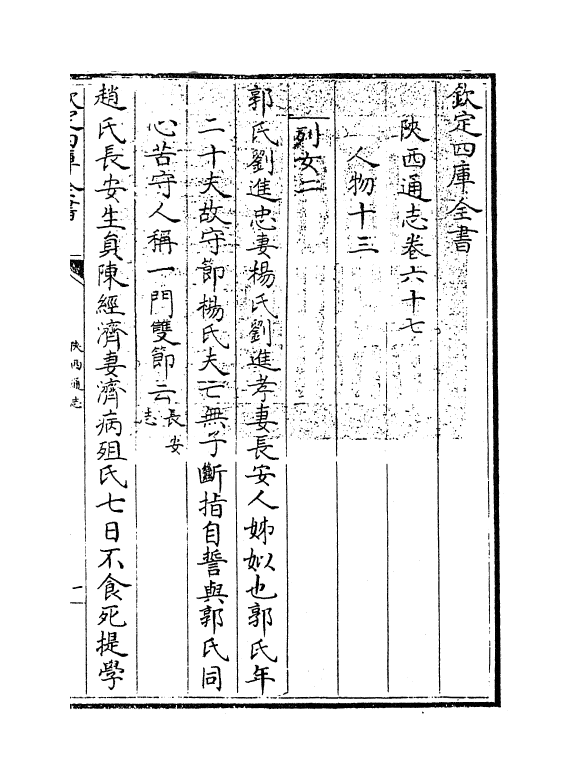 欽定四庫全書
陜西通志卷六十七
人物十三
列女二
郭氏劉進忠妻楊氏劉進孝妻長安人姊姒也郭氏年
二十夫故守節楊氏夫亡無子斷指自誓與郭氏同
心苦守人稱一門雙節云長安志
趙氏長安生員陳經濟妻濟病殂氏七日不食死提學
欽定四庫全書
陜西通志
一